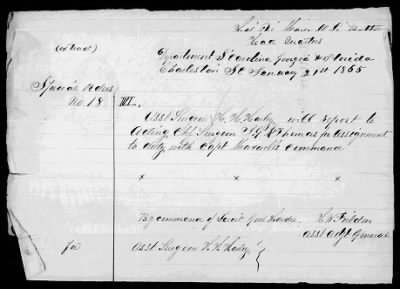 Head Quarters
(extract)
Department S° Carolina Georgia & Florida
Charleston SC January 21st 1865
Special Orders
No. 18
III.
Asst Surgeon H. H. will report to
Acting Chf Surgeon for assignment
to duty with Capt command
x x x
By command of Lieut Genl Hardee.
H W Feilden
Asst Adj General
for
Asst Surgeon H. H.